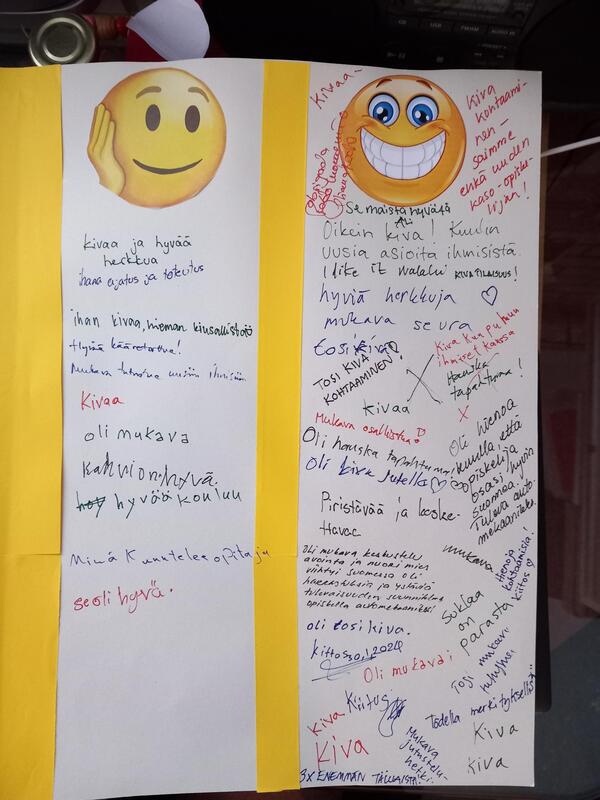 kivaa ja hyvää
herkkua
ihana ajatus ja toteutus
ihan kivaa, hieman kiusallista
Hyvää kääretorttua!
Mukava tutustua uusiin ihmisiin
Kivaa
oli mukava
Kahvi on hyvä.
hyvää kouluu
Minä Kuuntelee opitaja
se oli hyvä.
Kivaa
Kiva
kohtaami-
nen -
saimme
ehkä uuden
kaso-opiske-
lijan!
Se maista hyvätä
Oikein kiva! Kuulin
uusia asioita ihmisistä.
I like it walalu KIVA TILAISUUS!
hyviä herkkuja ♡
mukava seura
tosi kivaa
TOSI KIVA
KOHTAAMINEN!
Kiva kun puhuu
ihmiset kanssa
Hauska
tapahtuma!
Kivaa
X
Mukava osallistua
Oli hauska tapahtuma!
Oli kiva jutella ♡♡
Oli hienoa
kuulla, että
opiskelija
osasi hyvin
suomea.
Tuleva auto-
mekaanikko.
Piristävää ja
mukava
Hienoja
kohtaamisia!
kiitos ♡
Oli mukava keskustelu
avointa ja nuori mies
viihtyi suomessa oli
harrastuksia ja ystäviä
tulevaisuuden suunnitelma
opiskella automekaanikoksi
Suklaa
on
parasta
oli tosi kiva.
kiitos 30.1.2024
Oli mukavai
Tosi mukavi
Kiitus
Todella merkityksellistä
Kiva
Kiva
Mukava
jutustelu-
hetki.
Kiva
Kiva
3x ENEMMÄN TÄLLAISTA!